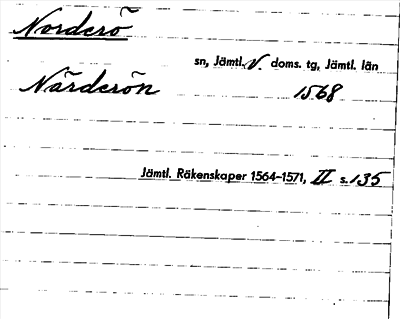 Norderö
sn, Jämtl. V. doms. tg, Jämtl. län
Närderön 1568
Jämtl. Räkenskaper 1564-1571, II s. 135